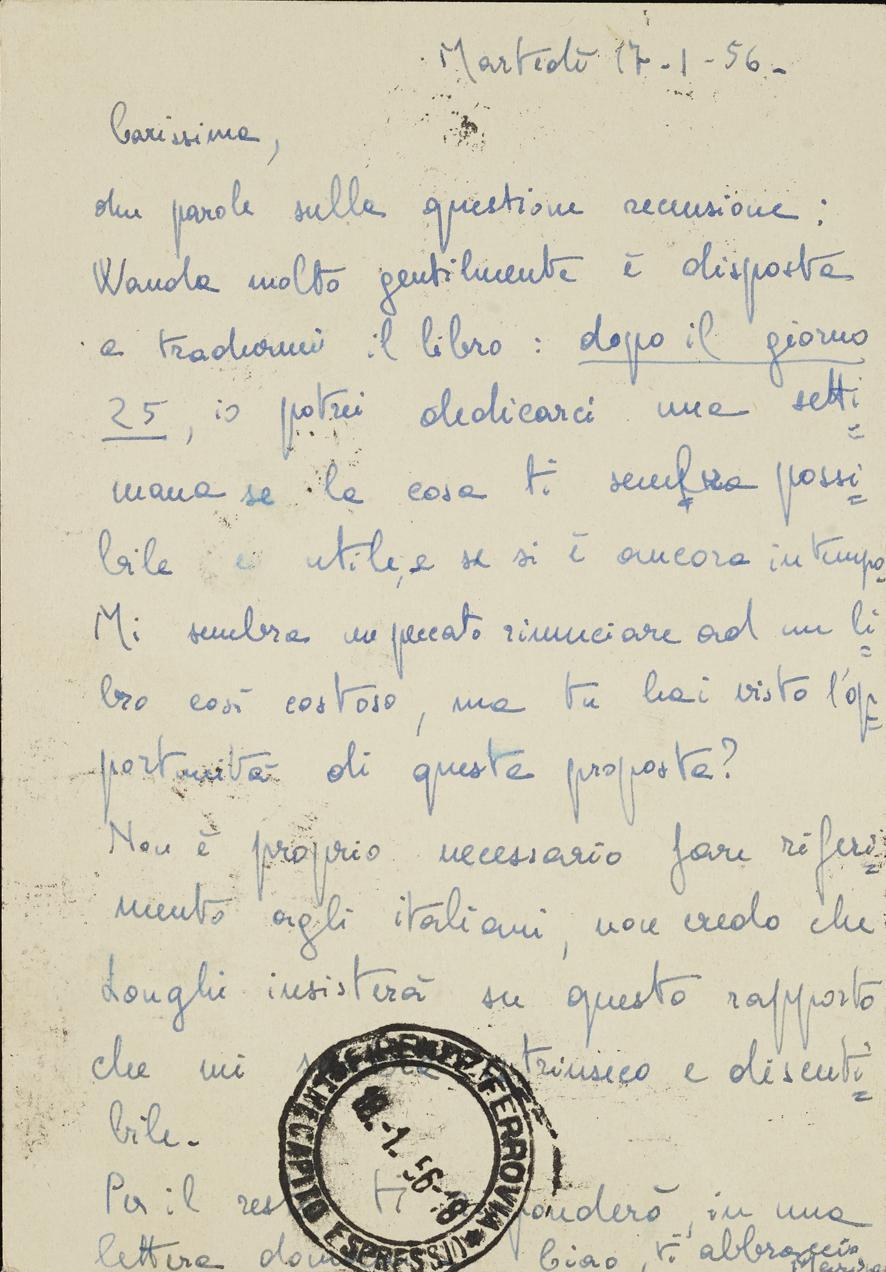 Martedì 17-1-56-
Carissima,
due parole sulla questione recensione:
Wanda molto gentilmente è disposta
a tradurmi il libro: dopo il giorno
25, io potrei dedicarci una setti=
mana se la cosa ti sembra possi=
bile e utile, e se si è ancora in tempo.
Mi sembra un peccato rinunciare ad un li=
bro così costoso, ma tu hai visto l'op=
portunità di questa proposta?
Non è proprio necessario fare riferi=
mento agli italiani, non credo che
Longhi insisterà su questo rapporto
che mi trinseco e discuti=
bile-
Per il ti ponderò, in una
lettera Ciao, ti abbraccio
RECAPITO ESPRESSI FIRENZE FERROVIA
-1.56-18